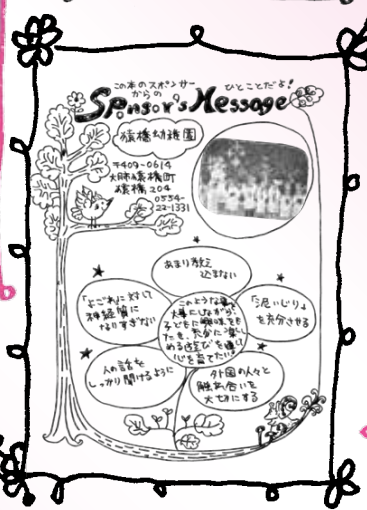 この本のスポンサーからの
ひとことだよ!
Sponsor's Message
猿橋幼稚園
〒409-0614
大月市猿橋町
猿橋 204
0554-
22-1331
あまり教え
込まない
「よごれ」に対して
神経質に
なりすぎない
「泥いじり」
を充分させる
このような事を
大事にしながら、
子どもに興味をも
たせ、充分に楽し
める遊びを通し
心を育てたい。
人の話を
しっかり聞けるように
外国の人々と
触れ合いを
大切にする